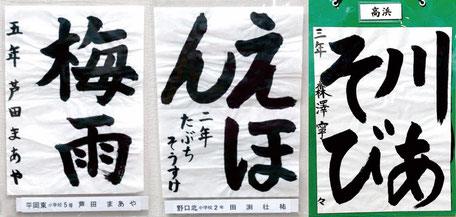 梅雨
五年 芦田まあや
平岡東小学校5年 芦田 まあや
えほ
ん
二年
たぶち
そうすけ
野口北小学校2年 田渕 壮祐
高浜
川あ
そび
三年 森澤寧々